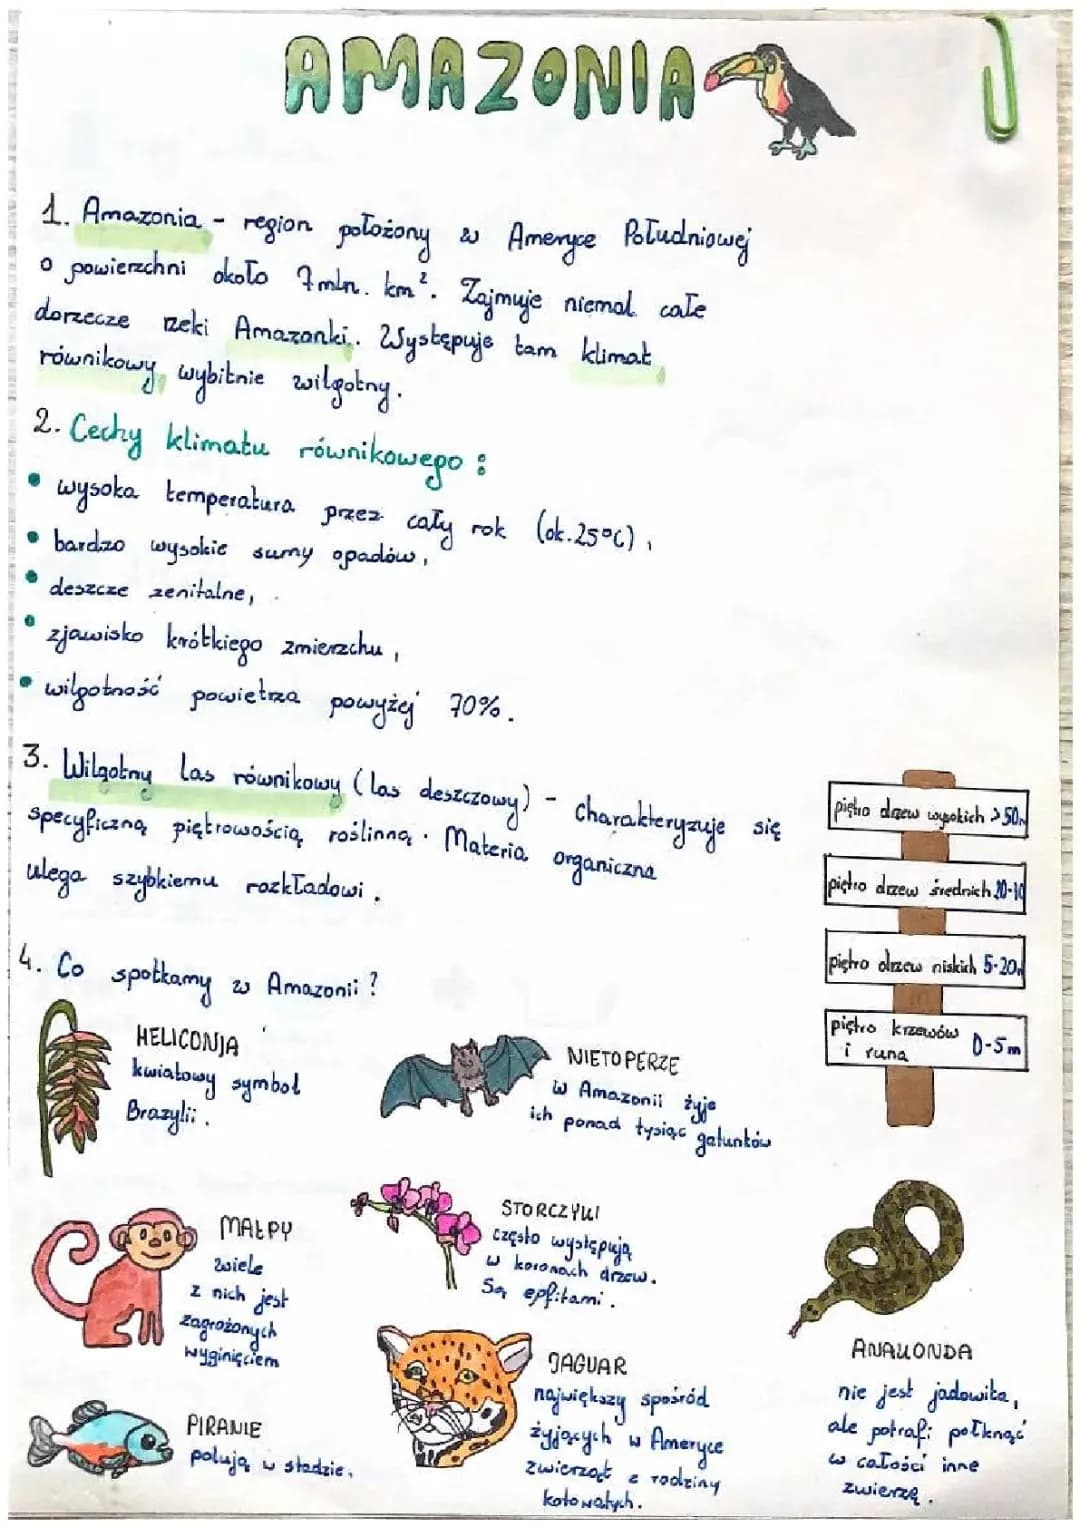 AMAZONIA
1. Amazonia - region położony w Ameryce Południowej
o powierzchni około 7 mln. km². Zajmuje niemal całe
dorzecze rzeki Amazonki. Występuje tam klimat
równikowy wybitnie wilgotny.
2. Cechy klimatu równikowego:
• wysoka temperatura przez cały rok (ok.25°C),
• bardzo wysokie sumy opadów,
• deszcze zenitalne,
• zjawisko krótkiego zmierzchu,
• wilgotność powietrza powyżej 70%.
3. Wilgotny las równikowy (las deszczowy) - charakteryzuje się
specyficzną piętrowością roślinną. Materia organiczna
ulega szybkiemu rozkładowi.
piętro drzew wysokich >50m
piętro drzew średnich
piętro drzew niskich 5-20m
piętro krzewów 0-5m
i runa
4. Co spotkamy w Amazonii?
HELICONIA
kwiatowy symbol
Brazylii.
NIETOPERZE
w Amazonii żyje
ich ponad tysiąc gatunków
MAŁPY
wiele
z nich jest
zagrożonych
wyginięciem
STORCZYKI
często występują
w koronach drzew.
Są epfitami.
ANAKONDA
nie jest jadowita,
ale potrafi połknąć
w całości inne
zwierzę.
PIRANIE
polują w stadzie.
JAGUAR
największy spośród
żyjących w Ameryce
zwierząt z rodziny
kotowatych.